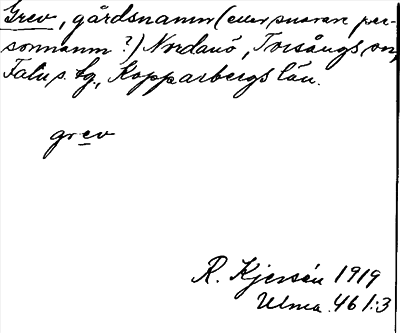 Grev, gårdsnamn (eller snarare per-
sonnamn?) Nordanö, Torsångs sn,
Falu s. bg, Kopparbergs län.
grev
R. Kjersén 1919
Ulma 461:3